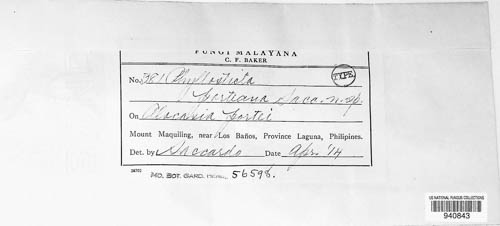 FUNGI MALAYANA
C. F. BAKER
No. 381 Phyllosticta TYPE
Porteana Sacc. n. sp.
On Alocasia portei
Mount Maquiling, near Los Baños, Province Laguna, Philipines.
Det. by Saccardo Date Apr. '14
MO. BOT. GARD. 56598.
US NATIONAL FUNGUS COLLECTIONS
940843